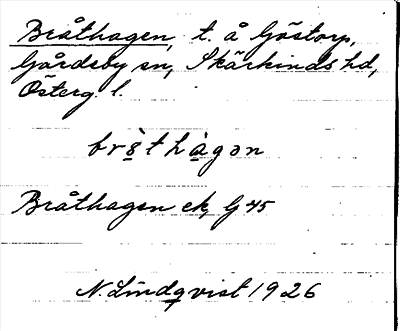 Bråthagen, t. å Göstorp,
Gårdeby sn, Skärkinds hd,
Österg. l.
bråthagen ek, G 45
N. Lindqvist 1926